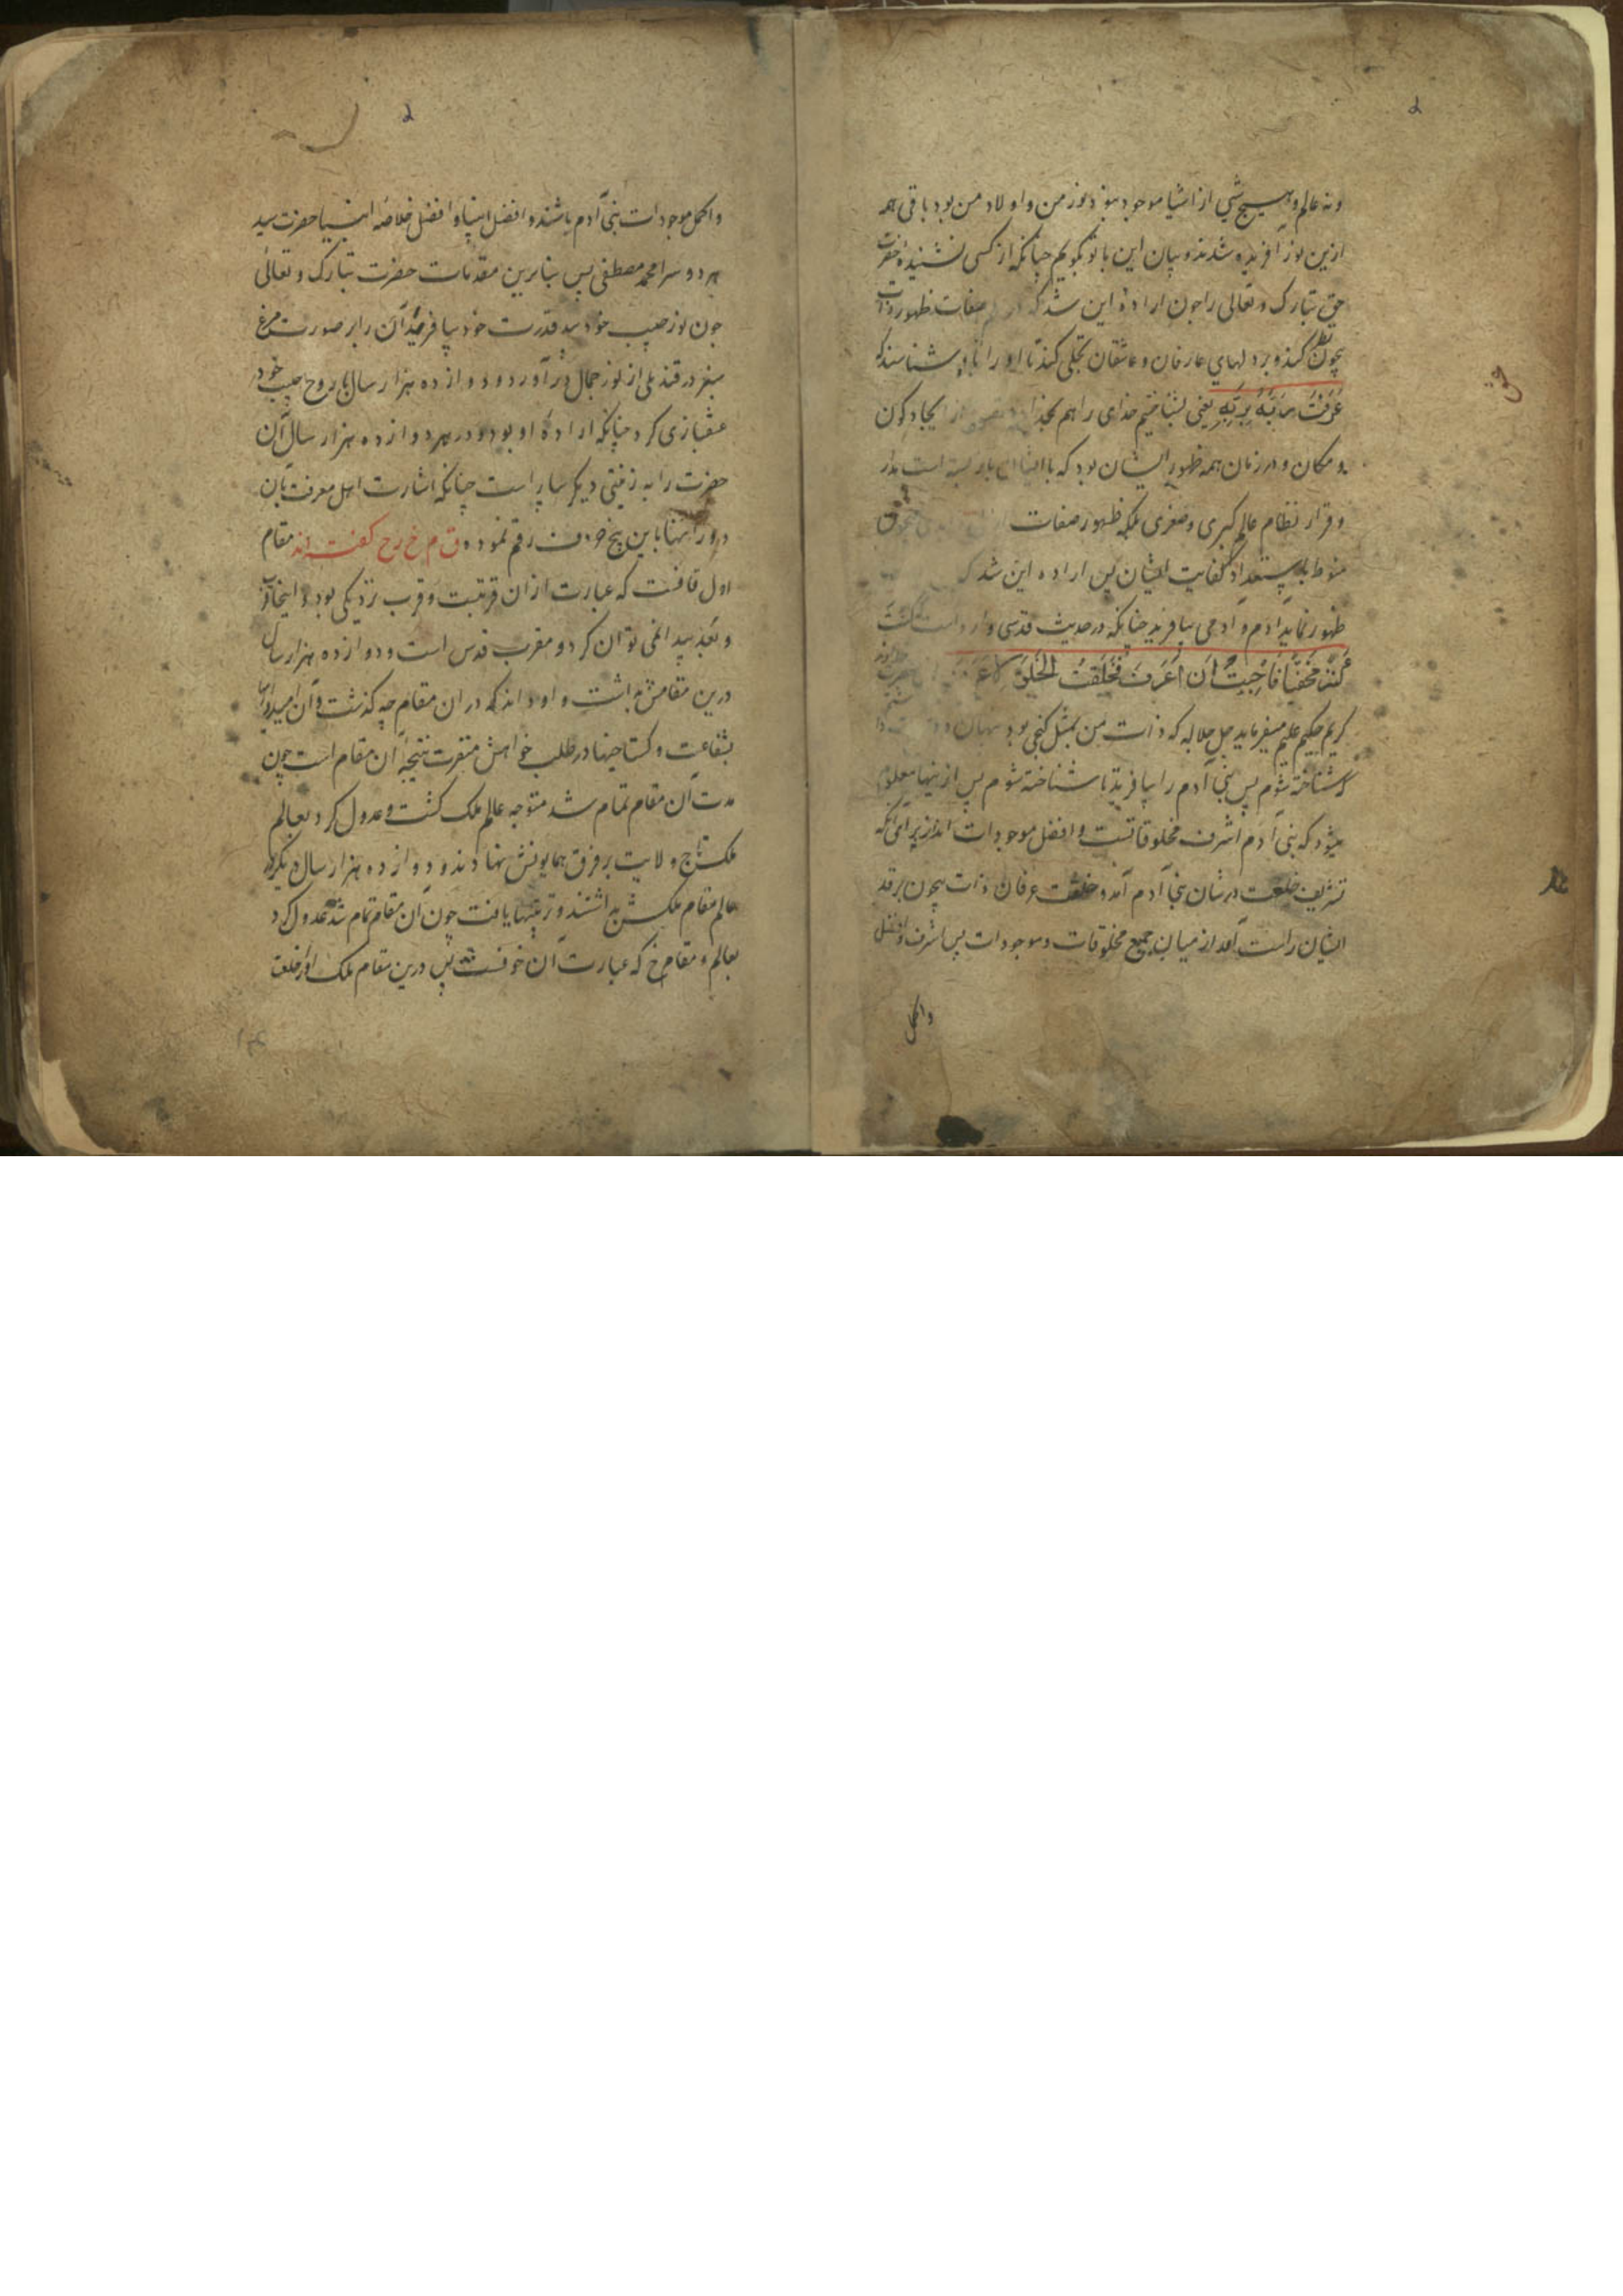 ۲
ونه عالم و هیچ شی از اشیا موجود نبود نور من و اولاد من بود باقی همه
ازین نور آفریده شدند و بیان این با تو بگویم چنانکه از کسی نشنیده حضرت
حق تبارک و تعالی را چون ارادهٔ این شد که صفات ظهور ذات
بیچون کند و بر دلهای عارفان و عاشقان تجلی کند تا او را باو شناسند که
عَرَفْتُ رَبّی بِرَبّی یعنی بشناختم خدای را هم بخدا از ایجاد کون
و مکان و در زمان همه ظهور ایشان بود که با ایشان باز بسته است مدار
و قرار نظام عالم کبری و صغری بلکه ظهور صفات
منوط باستعداد کفایت ایشان پس اراده این شد که
ظهور نماید آدم و آدمی بیافرید چنانکه در حدیث قدسی وارد است کُنْتُ
کَنْزاً مَخْفِیّاً فَاَحْبَبْتُ اَنْ اُعْرَفَ فَخَلَقْتُ الْخَلْقَ
کریم حکیم علیم میفرماید جل جلاله که ذات من بمثل گنجی بود پنهان
شناخته شوم پس بنی آدم را بیافریدم تا شناخته شوم پس ازینها معلوم
میشود که بنی آدم اشرف مخلوقاتست و افضل موجودات اند از برای آنکه
تشریف خلعت در شان بنی آدم آمد و خلعت عرفان ذات بیچون بر قد
ایشان راست آمد از میان جمیع مخلوقات و موجودات پس اشرف و افضل
و اکمل
۲
و اکمل موجودات بنی آدم باشند و افضل انبیا و افضل خلاصه انبیا حضرت سید
هر دو سرا محمد مصطفی پس بنابرین مقدمات حضرت تبارک و تعالی
چون نور حبیب خود بید قدرت خود بیافرید آن را بر صورت مرغ
سبز در قندیلی از نور جمال در آورد و دوازده هزار سال با روح حبیب خود
عشقبازی کرد چنانکه ارادهٔ او بود و در هر دوازده هزار سال آن
حضرت را به زینتی دیگر بیاراست چنانکه اشارت اهل معرفت بآن
در اینها باین پنج حرف رقم نموده ق م خ ر ح گفته اند مقام
اول قافست که عبارت از آن قربتست و قرب نزدیکی بود و اینجا
و بعد پیدا نمی توان کرد و مقرب قدس است و دوازده هزار سال
درین مقامش بداشت و او داند که در آن مقام چه گذشت و آن امیدواری
بشفاعت و گستاخیها در طلب خواهش مغفرت نتیجهٔ آن مقام است چون
مدت آن مقام تمام شد متوجه عالم ملک گشت و عدول کرد بعالم
ملک تاج ولایت بر فرق همایونش نهادند و دوازده هزار سال دیگر در
عالم مقام ملکش بداشتند و تربیتها یافت چون آن مقام تمام شد عدول کرد
بعالم و مقام خ که عبارت آن خوفست پس درین مقام ملک او را خلعت